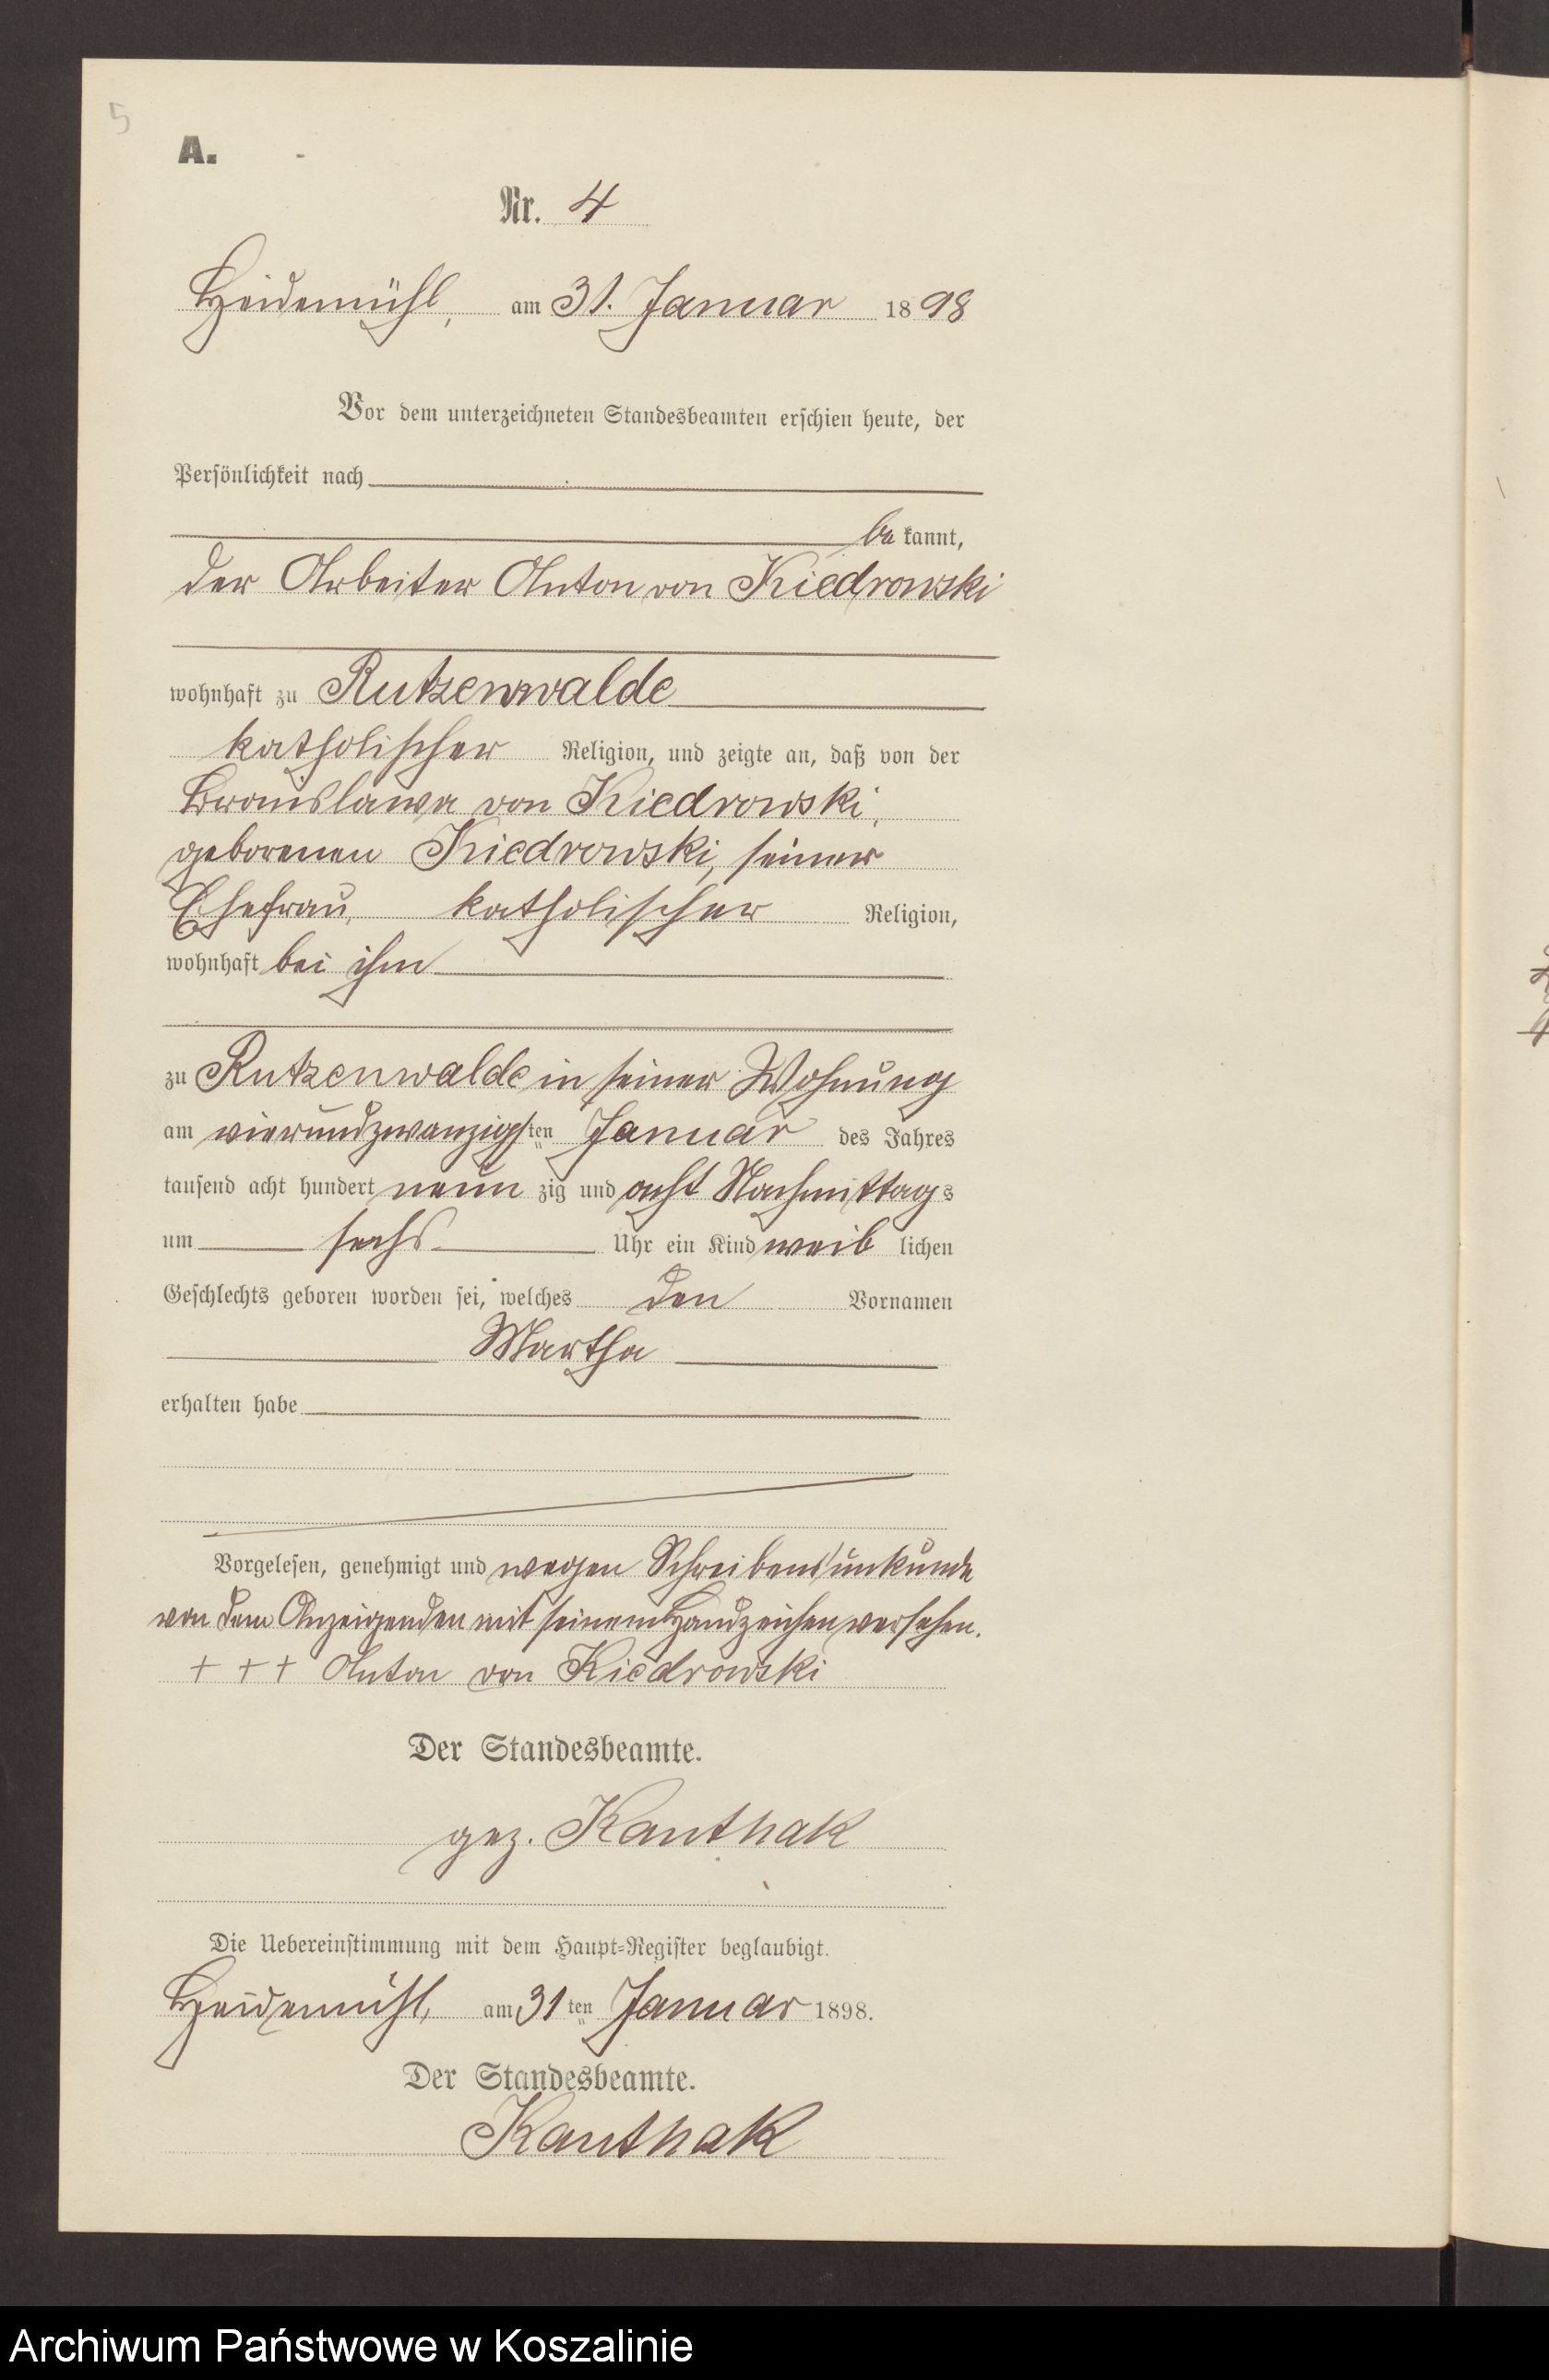 5
A.
Nr. 4
Heidemühl, am 31. Januar 1898
Vor dem unterzeichneten Standesbeamten erschien heute, der
Persönlichkeit nach
be kannt,
der Arbeiter Anton von Kiedrowski
wohnhaft zu Rutzenwalde
katholischer Religion, und zeigte an, daß von der
Bronislawa von Kiedrowski,
geborenen Kiedrowski, seiner
Ehefrau, katholischer Religion,
wohnhaft bei ihm
zu Rutzenwalde in seiner Wohnung
am vierundzwanzigsten Januar des Jahres
tausend acht hundert neun zig und acht Nachmittags
um sechs Uhr ein Kind weib lichen
Geschlechts geboren worden sei, welches den Vornamen
Martha
erhalten habe
Vorgelesen, genehmigt und wegen Schreibensunkunde
von dem Anzeigenden mit seinem Handzeichen versehen.
+ + + Anton von Kiedrowski
Der Standesbeamte.
gez. Kanthak
Die Uebereinstimmung mit dem Haupt-Register beglaubigt.
Heidemühl, am 31 ten Januar 1898.
Der Standesbeamte.
Kanthak
Archiwum Państwowe w Koszalinie